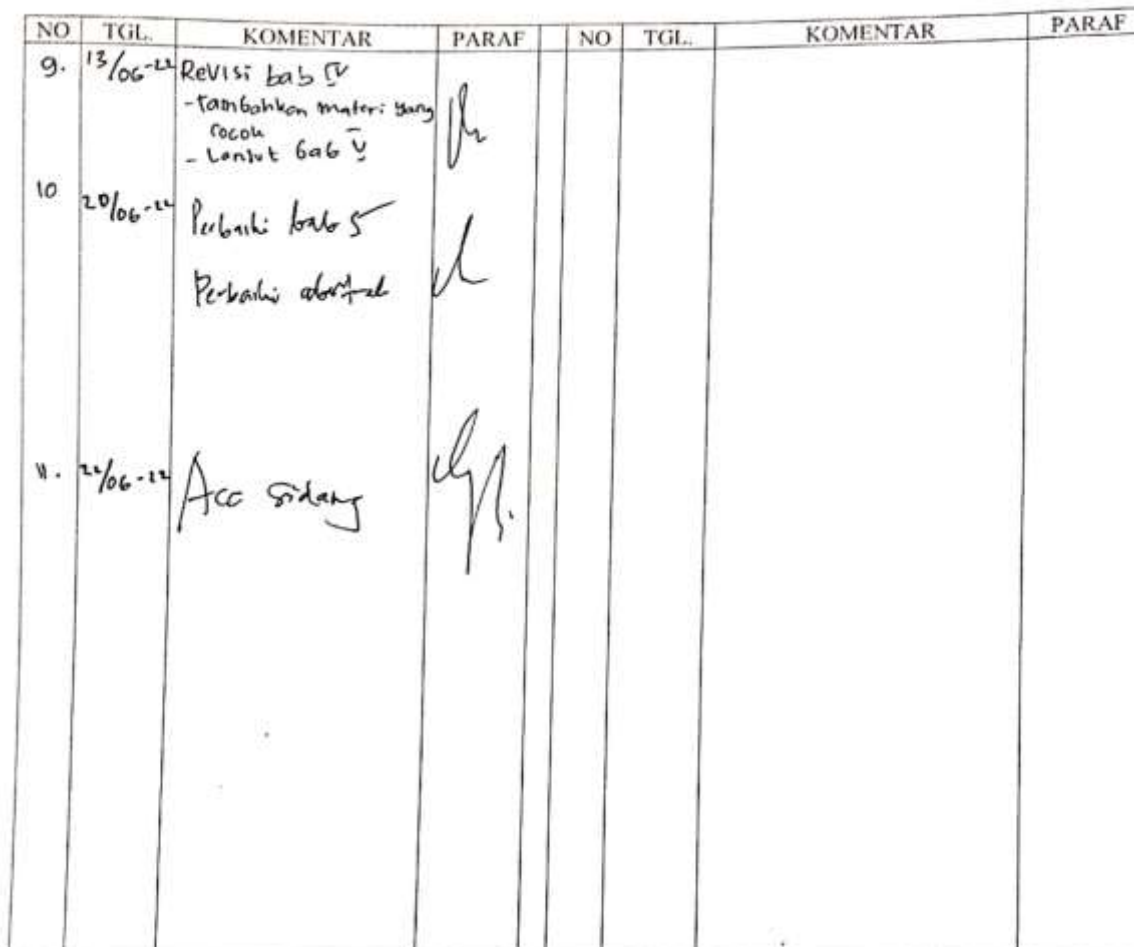 NO TGL. KOMENTAR PARAF NO TGL. KOMENTAR PARAF
9. 13/06-22 Revisi bab IV
- tambahkan materi yang
cocok
- Lanjut bab V
10 20/06-22 Perbaiki bab 5
Perbaiki abstrak
11. 22/06-22 Acc sidang